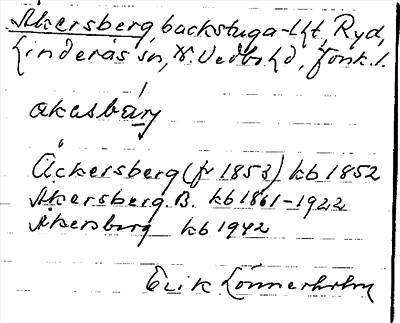 Åkersberg, backstuga-lht, Ryd,
Linderås sn, N. Vedbo hd, Jönk. l.
akasbæry
Åckersberg (fr 1853) kb 1852
Åkersberg B. kb 1861-1922
Åkersberg kb 1942
Erik Lönnerholm